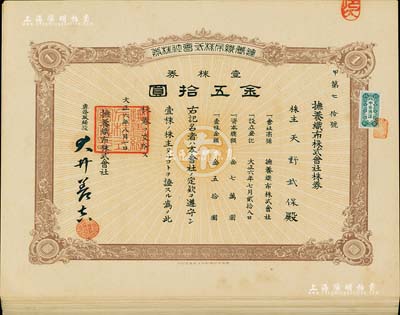 上海陽明拍賣
撫養織布株式會社株券
壹株券
金五拾圓
甲第七拾號
撫養織布株式會社株券
株主 天野武保殿
一會社商號 撫養織布株式會社
一設立登記 大正六年七月貳拾八日
一資本總額 金七萬圓
一壹株金額 金五拾圓
右記名者ハ本會社ノ定款ヲ遵守シ
壹株ノ株主タルコトヲ證スル爲メ此
株券ヲ交附ス
大正六年八月一日
撫養織布株式會社
專務取締役
大井